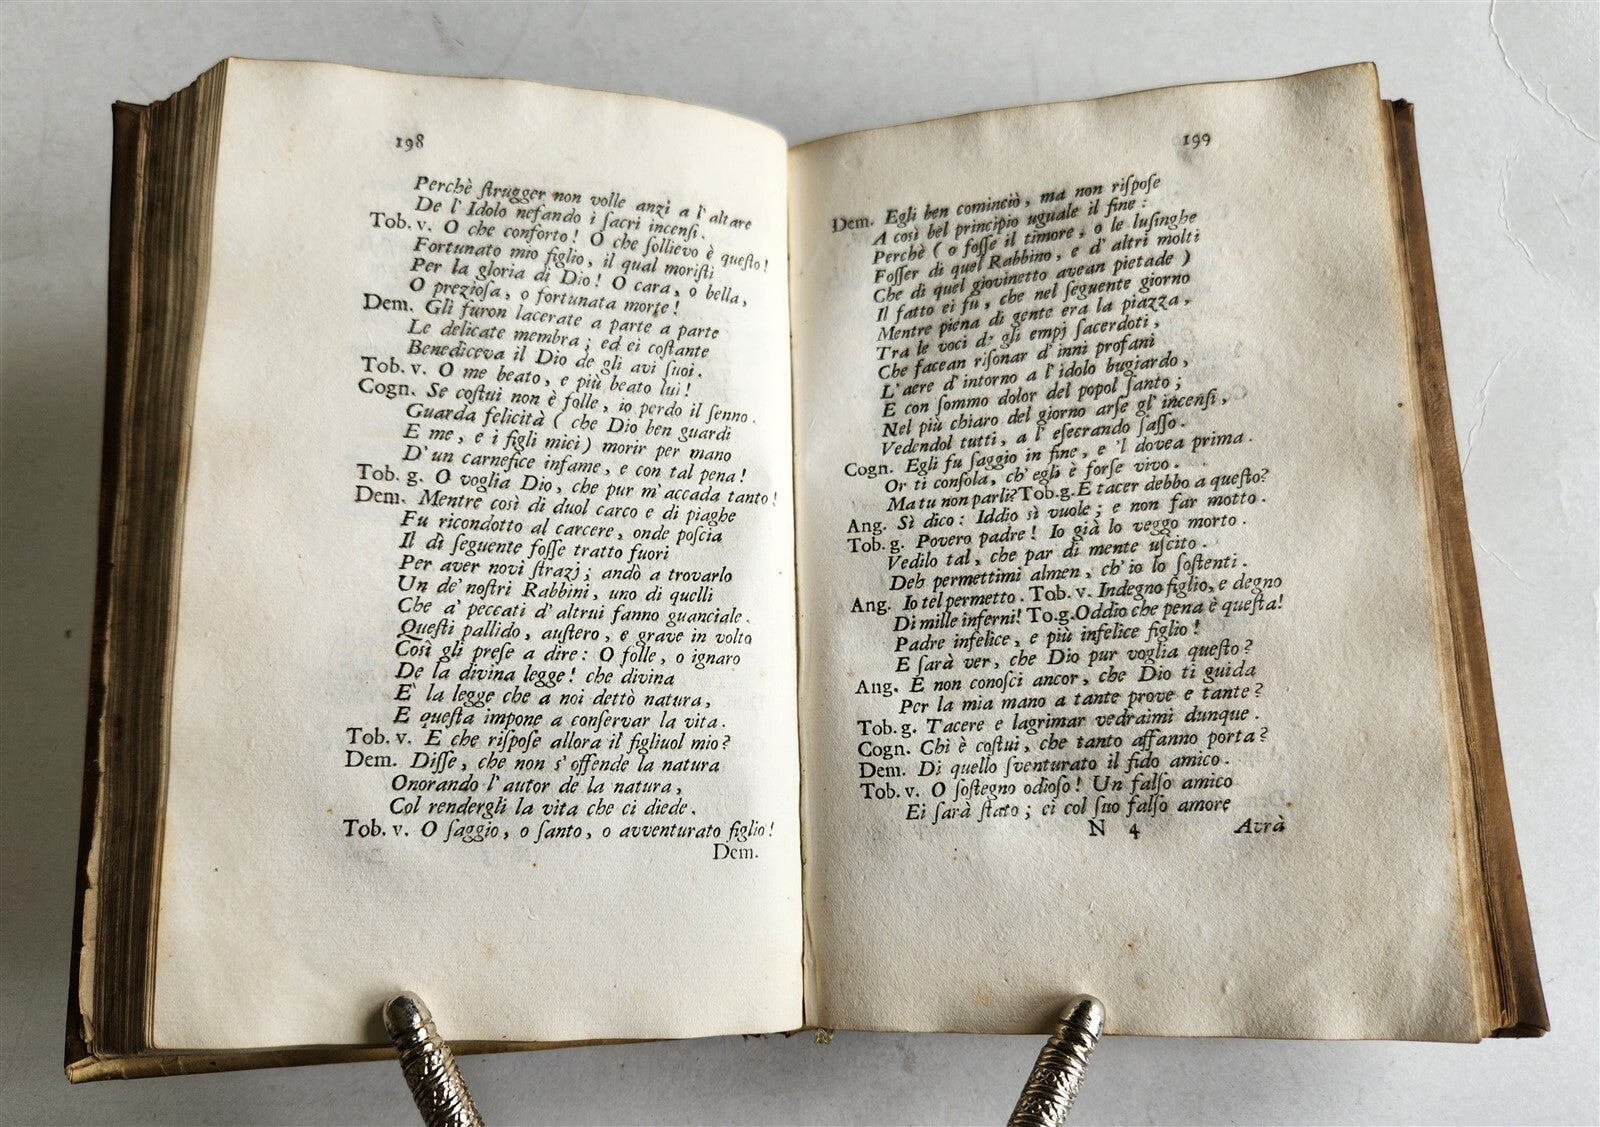 198
Perchè ſtrugger non volle anzi a l'altare
De l'Idolo nefando i ſacri incenſi.
Tob. v. O che conforto! O che ſollievo è queſto!
Fortunato mio figlio, il qual moriſti
Per la gloria di Dio! O cara, o bella,
O prezioſa, o fortunata morte!
Dem. Gli furon lacerate a parte a parte
Le delicate membra; ed ei coſtante
Benediceva il Dio de gli avi ſuoi.
Tob. v. O me beato, e più beato lui!
Cogn. Se coſtui non è folle, io perdo il ſenno.
Guarda felicità ( che Dio ben guardi
E me, e i figli miei ) morir per mano
D'un carnefice infame, e con tal pena!
Tob. g. O voglia Dio, che pur m'accada tanto!
Dem. Mentre così di duol carco e di piaghe
Fu ricondotto al carcere, onde poſcia
Il dì ſeguente foſſe tratto fuori
Per aver novi ſtrazj; andò a trovarlo
Un de' noſtri Rabbini, uno di quelli
Che a' peccati d'altrui fanno guanciale.
Queſti pallido, auſtero, e grave in volto
Così gli preſe a dire: O folle, o ignaro
De la divina legge! che divina
E' la legge che a noi dettò natura,
E queſta impone a conſervar la vita.
Tob. v. E che riſpoſe allora il figliuol mio?
Dem. Diſſe, che non s'offende la natura
Onorando l'autor de la natura,
Col rendergli la vita che ci diede.
Tob. v. O ſaggio, o ſanto, o avventurato figlio!
Dem.
199
Dem. Egli ben cominciò, ma non riſpoſe
A così bel principio uguale il fine:
Perchè ( o foſſe il timore, o le luſinghe
Foſſer di quel Rabbino, e d'altri molti
Che di quel giovinetto avean pietade )
Il fatto ei fu, che nel ſeguente giorno
Mentre piena di gente era la piazza,
Tra le voci de gli empj ſacerdoti,
Che facean riſonar d'inni profani
L'aere d'intorno a l'idolo bugiardo,
E con ſommo dolor del popol ſanto;
Nel più chiaro del giorno arſe gl'incenſi,
Vedendol tutti, a l'eſecrando ſaſſo.
Cogn. Egli fu ſaggio in fine, e 'l dovea prima.
Or ti conſola, ch'egli è forſe vivo.
Ma tu non parli? Tob. g. E tacer debbo a queſto?
Ang. Sì dico: Iddio sì vuole; e non far motto.
Tob. g. Povero padre! Io già lo veggo morto.
Vedilo tal, che par di mente uſcito.
Deh permettimi almen, ch'io lo ſoſtenti.
Ang. Io tel permetto. Tob. v. Indegno figlio, e degno
Di mille inferni! To. g. Oddio che pena è queſta!
Padre infelice, e più infelice figlio!
E ſarà ver, che Dio pur voglia queſto?
Ang. E non conoſci ancor, che Dio ti guida
Per la mia mano a tante prove e tante?
Tob. g. Tacere e lagrimar vedraimi dunque.
Cogn. Chi è coſtui, che tanto affanno porta?
Dem. Di quello ſventurato il fido amico.
Tob. v. O ſoſtegno odioſo! Un falſo amico
Ei ſarà ſtato; ei col ſuo falſo amore
N 4 Avrà